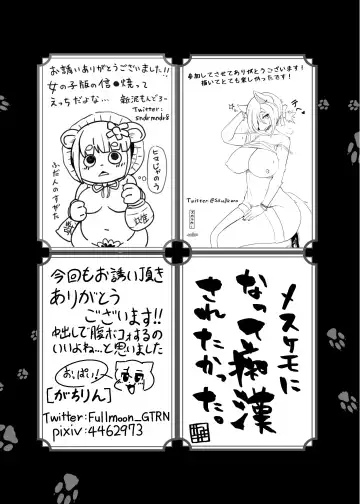 お誘いありがとうございました!!
女の子版の信●焼って
えっちだよな…
Twitter:
ヒマじゃのう
ふだんのすがた
参加してさせてありがとうございます!
描いてとても楽しかったです!
今回もお誘い頂き
ありがとう
ございます!!
中出しで腹ボコォするの
いいよね…と思いました
おっぱい!
[がちりん]
Twitter:Fullmoon_GTRN
pixiv:4462973
メスケモに
なって痴漢
されたかった。